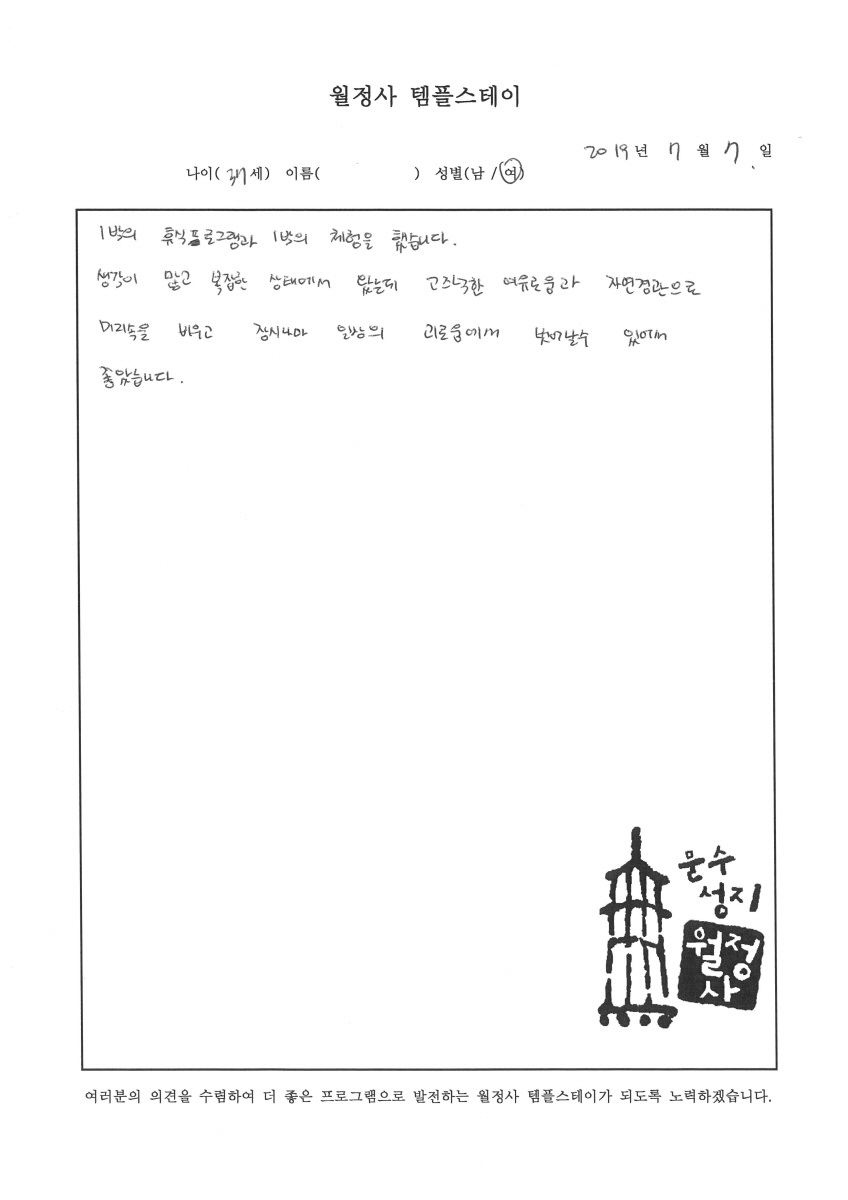 월정사 템플스테이
2019년 7월 7. 일
나이( 37세) 이름( ) 성별(남 / 여)
1박의 휴식프로그램과 1박의 체험을 했습니다.
생각이 많고 복잡한 상태에서 왔는데 고즈넉한 여유로움과 자연경관으로
머리속을 비우고 잠시나마 일상의 괴로움에서 벗어날수 있어서
좋았습니다.
문수
성지
월정
사
여러분의 의견을 수렴하여 더 좋은 프로그램으로 발전하는 월정사 템플스테이가 되도록 노력하겠습니다.